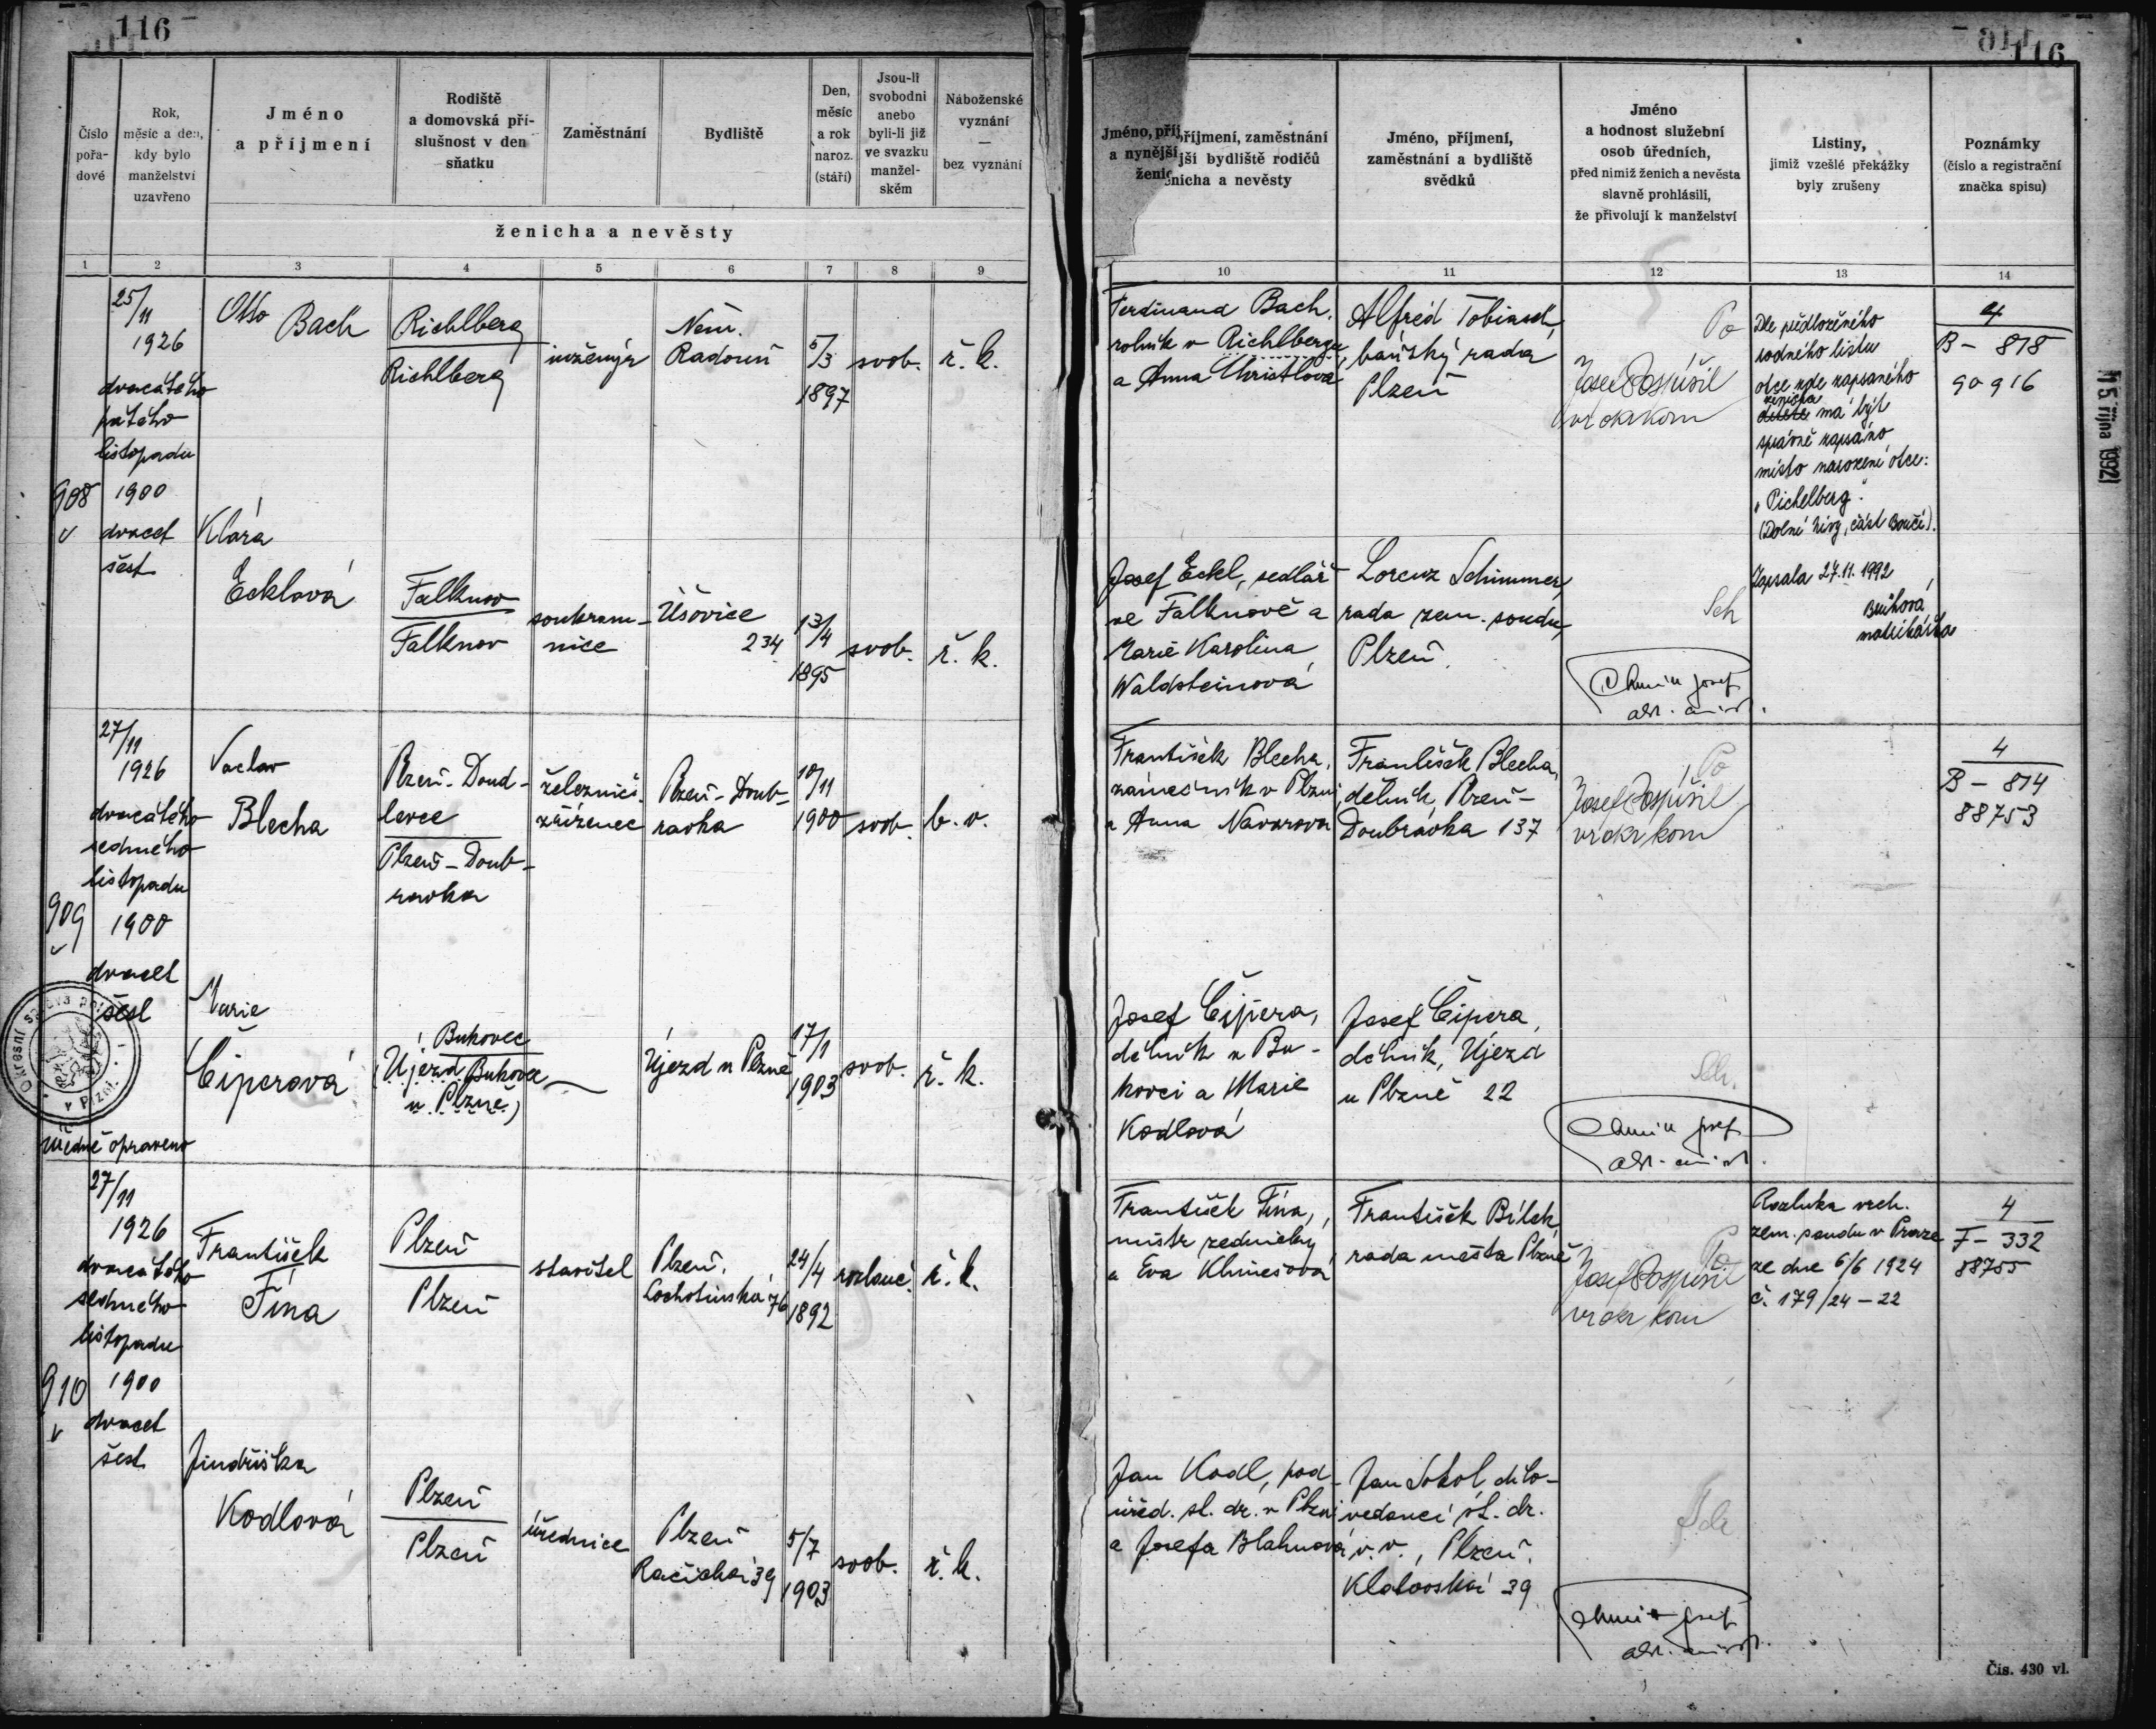 116
Číslo pořa- dové
Rok, měsíc a den, kdy bylo manželství uzavřeno
Jméno a příjmení
Rodiště a domovská pří- slušnost v den sňatku
Zaměstnání
Bydliště
Den, měsíc a rok naroz. (stáří)
Jsou-li svobodni anebo byli-li již ve svazku manžel- ském
Náboženské vyznání — bez vyznání
ženicha a nevěsty
1 2 3 4 5 6 7 8 9
25/11
1926
dvacátého
pátého
listopadu
1900
dvacet
šest
908
Otto
Bach
Richlberg
Richlberg
inženýr
Něm.
Radouň
5/3
1897
svob.
ř. k.
Klára
Ecklová
Falknov
Falknov
soukrom-
nice
Úšovice
234
13/4
1895
svob.
ř. k.
27/11
1926
dvacátého
sedmého
listopadu
1900
dvacet
šest
909
Václav
Blecha
Plzeň-Doud-
levce
Plzeň-Doub-
ravka
železnič.
zřízenec
Plzeň-Doub-
ravka
10/11
1900
svob.
b. v.
Marie
Čiperová
Bukovec
(Újezd Bukovec
u Plzně)
Újezd u Plzně
17/1
1903
svob.
ř. k.
úředně opraveno
27/11
1926
dvacátého
sedmého
listopadu
1900
dvacet
šest
910
František
Fína
Plzeň
Plzeň
stavitel
Plzeň,
Lochotínská 76
24/4
1892
rozlouč.
ř. k.
Jindřiška
Kodlová
Plzeň
Plzeň
úřednice
Plzeň
39
5/7
1903
svob.
ř. k.
116
Jméno, příj
a nynější
ženic
příjmení, zaměstnání
jší bydliště rodičů
enicha a nevěsty
Jméno, příjmení, zaměstnání a bydliště svědků
Jméno a hodnost služební osob úředních, před nimiž ženich a nevěsta slavně prohlásili, že přivolují k manželství
Listiny, jimiž vzešlé překážky byly zrušeny
Poznámky (číslo a registrační značka spisu)
10 11 12 13 14
Ferdinand Bach,
rolník v Richlbergu
a Anna Christlová
Alfréd Tobiasch,
báňský rada
Plzeň
Po
Josef Pospíšil
vr okr kom
Dle předloženého
rodného listu
otce zde zapsaného
ženicha
má být
správně zapsáno
místo narození otce:
"Pichelberg".
(Dolní Nivy, část Boučí).
Zapsala 27.11.1992
matrikářka
4
B - 818
90916
15. října 1992
Josef Eckl, sedlář
ve Falknově a
Marie Karolina
Waldsteinová
Lorenz Schimmer,
rada zem. soudu,
Plzeň.
Sch
František Blecha,
zámečník v Plzni
a Anna Navarova
František Blecha,
dělník, Plzeň-
Doubravka 137
Po
Josef Pospíšil
vr okr kom
4
B - 814
88753
Josef Čipera,
dělník v Bu-
kovci a Marie
Kodlová
Josef Čipera,
dělník, Újezd
u Plzně 22
Sch.
František Fína,
mistr zednický
a Eva Klimešová
František Bílek
rada města Plzně
Po
Josef Pospíšil
vr okr kom
Rozluka vrch.
zem. soudu v Praze
ze dne 6/6 1924
č. 179/24-22
4
F - 332
88755
Jan Kodl, pod-
úřed. st. dr. v Plzni
a Josefa Blahnová
Jan Sokol, dílo-
vedoucí st. dr.
v. v., Plzeň,
Klatovská 39
Sch
Čís. 430 vl.